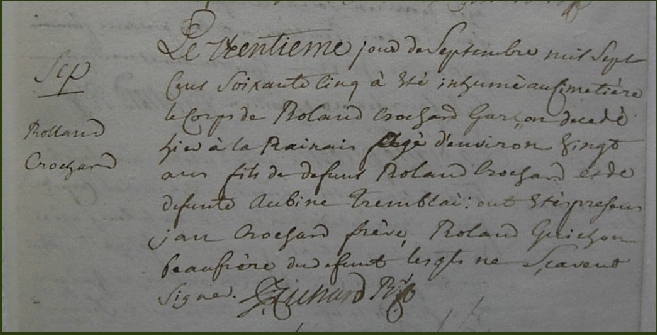 Sep
Rolland
Crochard
Le trentieme jour de Septembre mil sept
cens soixante cinq à été inhumé au cimetiere
le corps de Roland Crochard garçon decedé
hier à la Rainais agé d'environ vingt
ans fils de defunt Roland Crochard et de
defunte Aubine Tremblai: ont été presens
jan Crochard frère, Roland Guichon
beaufrère du defunt lesqls ne sçavent
signer.